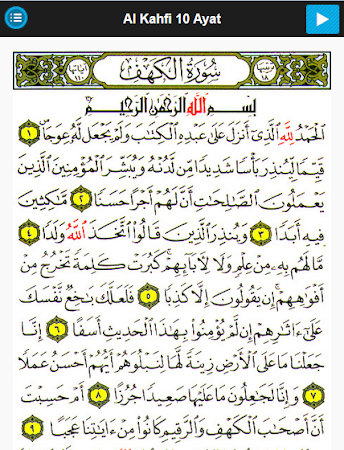 Al Kahfi 10 Ayat
سُورَةُ الْكَهْفِ
بِسْمِ اللَّهِ الرَّحْمَٰنِ الرَّحِيمِ
الْحَمْدُ لِلَّهِ الَّذِي أَنْزَلَ عَلَىٰ عَبْدِهِ الْكِتَابَ وَلَمْ يَجْعَلْ لَهُ عِوَجًا ۜ ١
قَيِّمًا لِيُنْذِرَ بَأْسًا شَدِيدًا مِنْ لَدُنْهُ وَيُبَشِّرَ الْمُؤْمِنِينَ الَّذِينَ
يَعْمَلُونَ الصَّالِحَاتِ أَنَّ لَهُمْ أَجْرًا حَسَنًا ٢ مَاكِثِينَ
فِيهِ أَبَدًا ٣ وَيُنْذِرَ الَّذِينَ قَالُوا اتَّخَذَ اللَّهُ وَلَدًا ٤
مَا لَهُمْ بِهِ مِنْ عِلْمٍ وَلَا لِآبَائِهِمْ ۚ كَبُرَتْ كَلِمَةً تَخْرُجُ مِنْ
أَفْوَاهِهِمْ ۚ إِنْ يَقُولُونَ إِلَّا كَذِبًا ٥ فَلَعَلَّكَ بَاخِعٌ نَفْسَكَ
عَلَىٰ آثَارِهِمْ إِنْ لَمْ يُؤْمِنُوا بِهَٰذَا الْحَدِيثِ أَسَفًا ٦ إِنَّا
جَعَلْنَا مَا عَلَى الْأَرْضِ زِينَةً لَهَا لِنَبْلُوَهُمْ أَيُّهُمْ أَحْسَنُ عَمَلًا
٧ وَإِنَّا لَجَاعِلُونَ مَا عَلَيْهَا صَعِيدًا جُرُزًا ٨ أَمْ حَسِبْتَ
أَنَّ أَصْحَابَ الْكَهْفِ وَالرَّقِيمِ كَانُوا مِنْ آيَاتِنَا عَجَبًا ٩